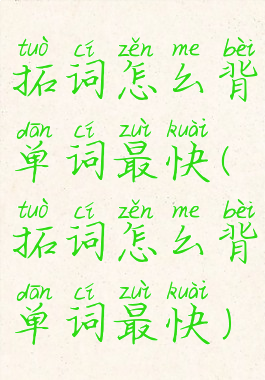 tuò cí zěn me bèi
拓词怎么背
dān cí zuì kuài
单词最快(
tuò cí zěn me bèi
拓词怎么背
dān cí zuì kuài
单词最快)